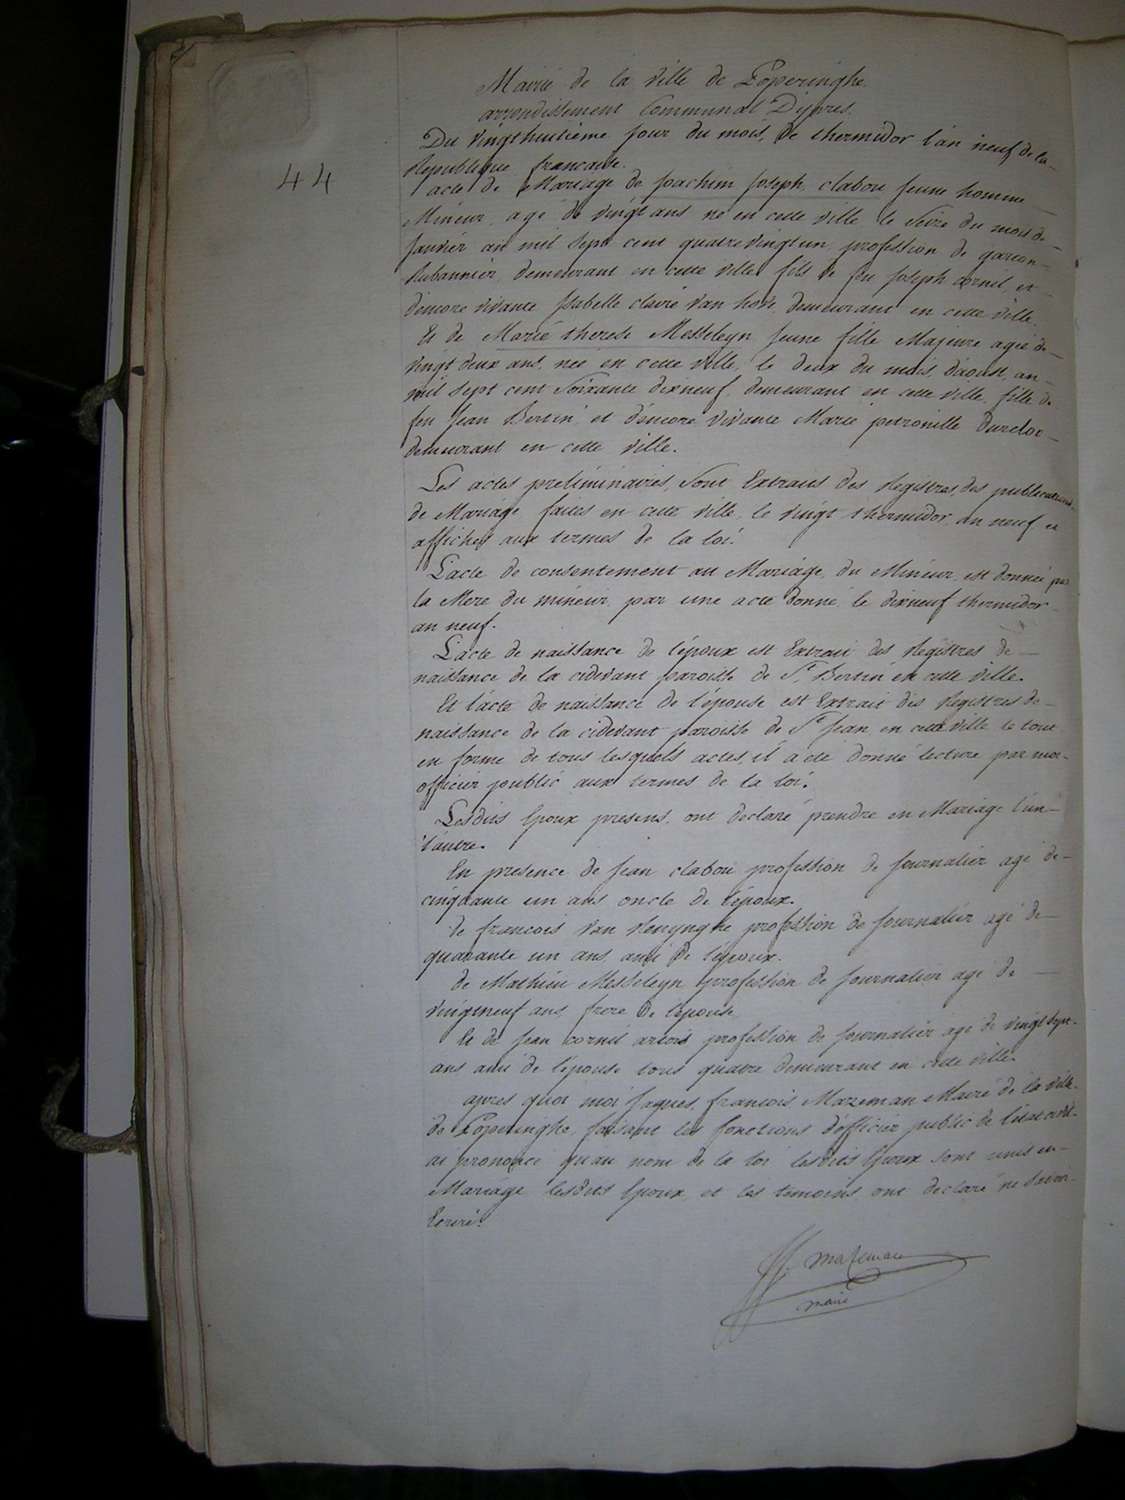 Mairie de la ville de Poperinghe
arrondissement Communal Dijpres.
44
Du vingthuitieme jour du mois, de thermidor l'an neuf de la
Republique francaise.
acte de Mariage de Joachim Joseph clabou jeune homme
Mineur, agé de vingt ans né en cette ville le Seize du mois de
Janvier an mil sept cent quatrevingtun, profession de garcon
Rubannier, demeurant en cette ville, fils de feu Joseph Cornil, et
d'encore vivante Isabelle claire van hove, demeurant en cette ville.
Et de Marie therese Messeleyn jeune fille Majeure agée de
vingt deux ans, née en cette ville, le deux du mois d'aoust, an
mil sept cent Soixante dixneuf, demeurant en cette ville, fille de
feu Jean Bertin, et d'encore vivante Marie petronille
demeurant en cette ville.
Les actes preliminaires, sont Extraits des Registres, des publications
de Mariage faites en cette ville, le vingt thermidor, an neuf et
affichés aux termes de la loi.
L'acte de consentement au Mariage, du Mineur, est donnée par
la Mere du mineur, par une acte donné le dixneuf thermidor
an neuf.
L'acte de naissance de l'époux est Extrait des Registres de
naissance de la cidevant paroisse de St Bertin en cette ville.
Et l'acte de naissance de l'épouse est Extrait des Registres de
naissance de la cidevant paroisse de St Jean en cette ville le tout
en forme de tous lesquels actes, il a été donné lecture par moi
officier public aux termes de la loi.
Lesdits Epoux presens, ont declaré prendre en Mariage l'un
l'autre.
En presence de Jean clabou profession de Journalier agé de
cinquante un ans oncle de l'époux.
de francois van profession de Journalier agé de
quarante un ans, ami de l'époux.
de Mathieu Messeleyn profession de Journalier agé de
vingtneuf ans, frere de l'épouse.
Et de Jean cornil artois profession de Journalier agé de vingt sept
ans ami de l'épouse tous quatre demeurant en cette ville.
apres quoi moi Jaques, francois Mazeman Maire de la ville
de Poperinghe, faisant les fonctions d'officier public de l'etat civil
ai prononcé qu'au nom de la loi lesdits Epoux sont unis en
Mariage, lesdits Epoux, et les temoins, ont declaré ne savoir
Ecrire.
mazeman
maire